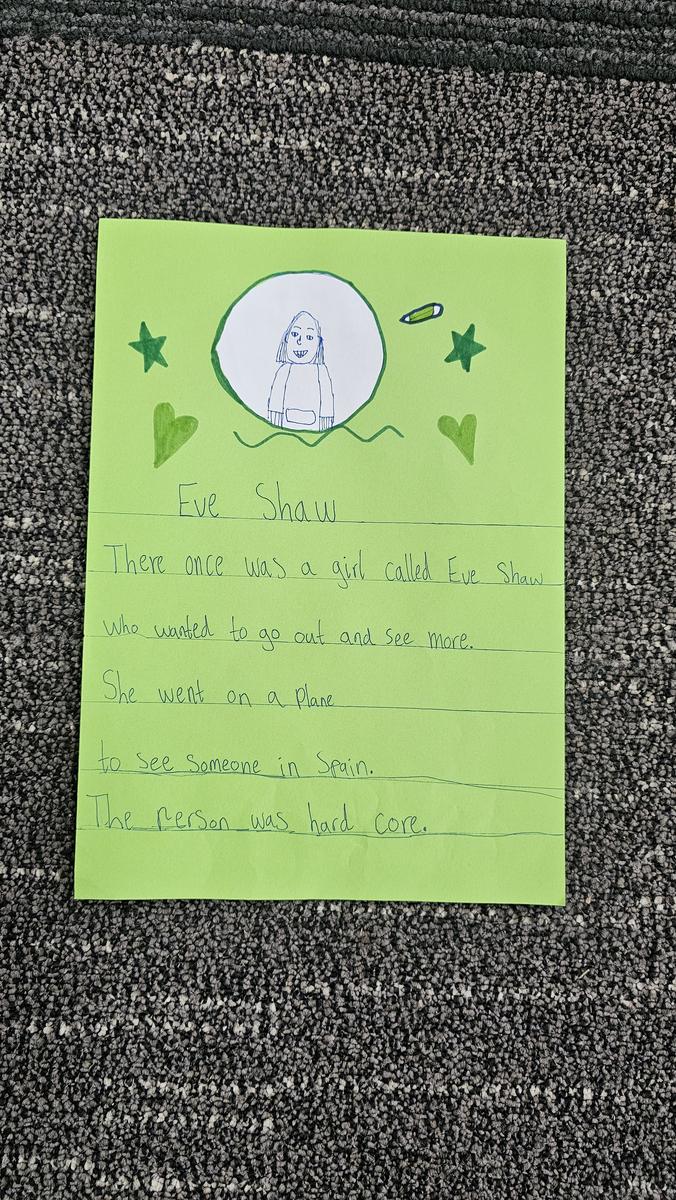 Eve Shaw
There once was a girl called Eve Shaw
who wanted to go out and see more.
She went on a plane
to see someone in Spain.
The Person was hard core.